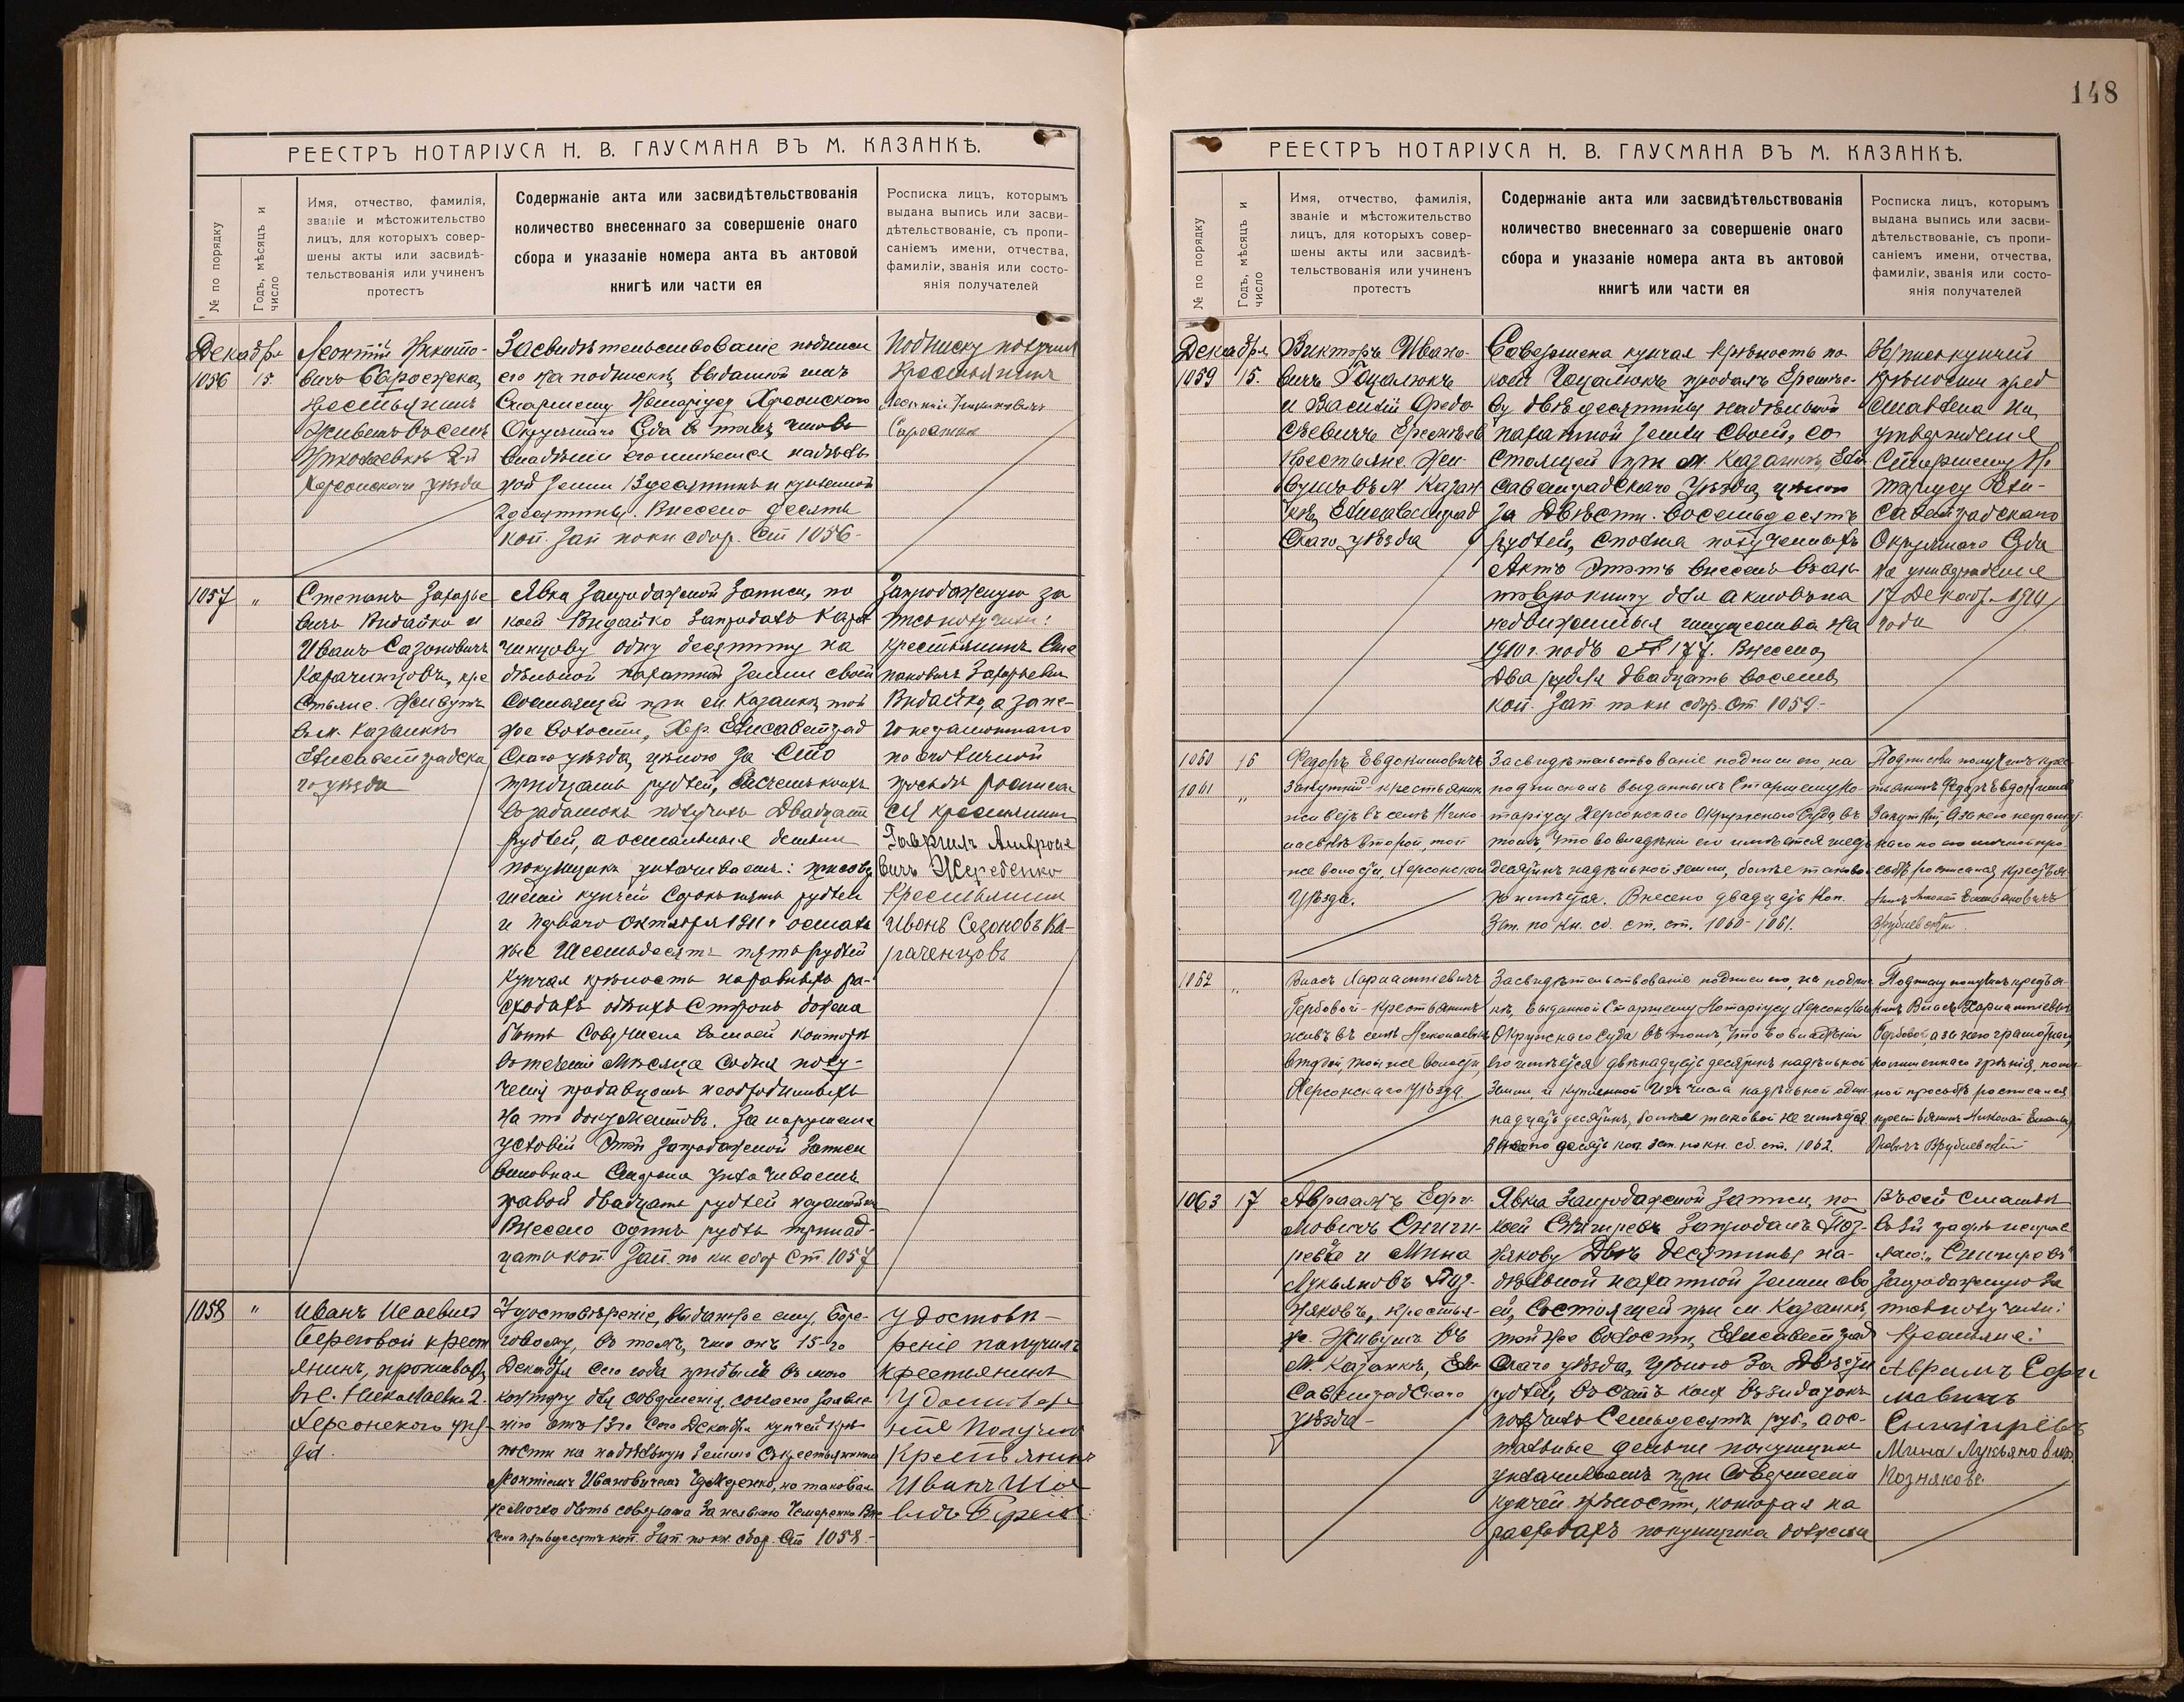 148
РЕЕСТРЪ НОТАРІУСА Н. В. ГАУСМАНА ВЪ М. КАЗАНКѢ.
№ по порядку
Годъ, мѣсяцъ и
число
Имя, отчество, фамилія,
званіе и мѣстожительство
лицъ, для которыхъ совер-
шены акты или засвидѣ-
тельствованія или учиненъ
протестъ
Содержаніе акта или засвидѣтельствованія
количество внесеннаго за совершеніе онаго
сбора и указаніе номера акта въ актовой
книгѣ или части ея
Росписка лицъ, которымъ
выдана выпись или засви-
дѣтельствованіе, съ пропи-
саніемъ имени, отчества,
фамиліи, званія или состо-
янія получателей
Декабря
1056 15.
Леонтій
вичъ
крестьянинъ
живетъ въ селѣ
Николаевкѣ 2-й
Херсонскаго уѣзда
Засвидѣтельствованіе подписи
его на подпискѣ, выданной имъ
Старшему Нотаріусу Херсонскаго
Окружнаго Суда въ томъ, что въ
владѣніи его имѣется надѣль
ной земли 13 десятинъ и купленной
2 десятины. Внесено десять
коп. Зап. по кн. сбор. ст. 1056-
Подписку получилъ
Крестьянинъ
1057 "
Степанъ Захарье
вичъ Видайко и
Иванъ Сазоновичъ
Карачинцовъ, кре
стьяне. Живутъ
въ м. Казанкѣ
Елисаветградска
го уѣзда
Явка запродажной записи, по
коей Видайко запродалъ Кара
чинцову одну десятину на
дѣльной пахатной земли своей
состоящей при м. Казанкѣ, той
же волости, Хер. Елисаветград
скаго уѣзда, цѣною за сто
тридцать рублей, въ счетъ коихъ
въ задатокъ получилъ двадцать
рублей, а остальные деньги
покупщикъ уплачиваетъ: при совер
шеніи купчей сорокъ пять рублей
и перваго октября 1911 г. осталь
ные шестьдесятъ пять рублей
Купчая крѣпость на равныхъ ра-
сходахъ обѣихъ сторонъ должна
быть совершена въ моей конторѣ
въ теченіи мѣсяца со дня полу-
ченія продавцомъ необходимыхъ
на то документовъ. За нарушеніе
условій этой запродажной записи
виновная сторона уплачиваетъ
правой двадцать рублей неустойки
Внесено одинъ рубль тринад-
цать коп. Зап. по кн. сбор. ст. 1057
Запродажную за
пись получили:
крестьянинъ Сте
пановичъ Захарьевъ
Видайко, а за не-
го неграмотнаго
по его личной
просьбѣ росписал
ся крестьянинъ
Гавріилъ Амвросіе
вичъ Жеребенко
Крестьянинъ
Иванъ Сезоновъ Ка-
раченцовъ
1058 "
Иванъ Исаевичъ
Береговой крест
янинъ, проживаетъ
в с. Николаевкѣ 2.
Херсонскаго уѣз-
да.
Удостовѣреніе, выданное ему, Бере-
говому, въ томъ, что онъ 15-го
Декабря сего года прибылъ въ мою
контору для совершенія, согласно заявле-
нію отъ 13го сего Декабря купчей крѣ-
пости на надѣльную землю съ крестьяниномъ
Леонтіемъ Ивановичемъ Чемеренко, но таковая
не могла быть совершена за неявкою Чемеренко. Вне
сено пятьдесятъ коп. Зап. по кн. сбор. ст. 1058.-
Удостовѣ-
реніе получилъ
крестьянинъ
Удостовере
ніе получилъ
Крестьянинъ
Иванъ
РЕЕСТРЪ НОТАРІУСА Н. В. ГАУСМАНА ВЪ М. КАЗАНКѢ.
№ по порядку
Годъ, мѣсяцъ и
число
Имя, отчество, фамилія,
званіе и мѣстожительство
лицъ, для которыхъ совер-
шены акты или засвидѣ-
тельствованія или учиненъ
протестъ
Содержаніе акта или засвидѣтельствованія
количество внесеннаго за совершеніе онаго
сбора и указаніе номера акта въ актовой
книгѣ или части ея
Росписка лицъ, которымъ
выдана выпись или засви-
дѣтельствованіе, съ пропи-
саніемъ имени, отчества,
фамиліи, званія или состо-
янія получателей
Декабря
1059 15.
Викторъ Ивано-
вичъ Гоцалюкъ
и Василій Федо
сѣевичъ Еремѣевъ
крестьяне. Жи-
вутъ въ м. Казан
кѣ, Елисаветград
скаго уѣзда
Совершена купчая крѣпость по
коей Гоцалюкъ продалъ Еремѣе-
ву двѣ десятины надѣльной
пахатной земли своей, со
стоящей при м. Казанкѣ, Ели
саветградскаго уѣзда, цѣною
за двѣсти восемьдесятъ
рублей, сполна полученныхъ
Актъ этотъ внесенъ въ ак-
товую книгу для актовъ на
недвижимыя имущества на
1910 г. подъ № 177. Внесено
два рубля двадцать восемь
коп. Зап. по кн. сбор. ст. 1059-
Выпись купчей
крѣпости пред
ставлена на
утвержденіе
Старшему Но
таріусу Ели-
саветградскаго
Окружнаго Суда
на утвержденіе
17 Декабр. 1910
года
1060 16
1061 "
Федоръ Евдокимовичъ
Закутній крестьянинъ
живетъ въ селѣ Нико
лаевкѣ второй, той
же волости, Херсонскаго
Уѣзда.
Засвидѣтельствованіе подписи его, на
подпискахъ выданныхъ Старшему Но-
таріусу Херсонскаго Окружнаго Суда въ
томъ, что во владѣніи его имѣется шесть
десятинъ надѣльной земли, болѣе таковой
не имѣется. Внесено двадцать коп.
Зап. по кн. сб. ст. ст. 1060-1061.
Подписки получилъ крес
тьянинъ Федоръ Евдокимов
Закутній, а за него неграмот
наго по его личной про
сьбѣ росписался крестья
нинъ Николай
Врублевскій.
1062 "
Власъ Харлампіевичъ
Гербовой крестьянинъ
живъ въ селѣ Николаевкѣ
второй, той же волости
Херсонскаго Уѣзда.
Засвидѣтельствованіе подписи его, на подпис
кѣ, выданной Старшему Нотаріусу Херсонскаго
Окружнаго Суда въ томъ, что во владѣніи
его имѣется двѣнадцать десятинъ надѣльной
земли и купленной изъ числа надѣльной один
надцать десятинъ, болѣе таковой не имѣется.
Внесено десять коп. зап. по кн. сб. ст. 1062.
Подписку получилъ крестья
нинъ Власъ Харлампіевичъ
Гербовой, а за него грамотнаго,
но лишеннаго зрѣнія, по лич
ной просьбѣ росписался
крестьянинъ Николай
Врублевскій
1063 17
Авраамъ Ефи-
мовичъ Снигы-
ревъ и Мина
Лукьяновъ Поз-
няковъ, крестья-
не. Живутъ въ
м. Казанкѣ, Ели
саветградскаго
уѣзда-
Явка запродажной записи, по
коей Снигиревъ запродалъ Поз-
някову двѣ десятины на-
дѣльной пахатной земли сво
ей, состоящей при м. Казанкѣ,
той же волости, Елисаветград
скаго уѣзда, цѣною за двѣсти
рублей, въ счетъ коихъ въ задатокъ
получилъ семьдесятъ руб., а ос-
тальные деньги покупщикъ
уплачиваетъ при совершеніи
купчей крѣпости, которая на
расходахъ покупщика должна
Въ сей статьѣ
въ 3й графѣ исправ
лено: „Снигиревъ"
Запродажную за
пись получили:
Крестьяне:
Аврамъ Ефи
мовичъ
Снигиревъ
Мина Лукьяновъ
Позняковъ.